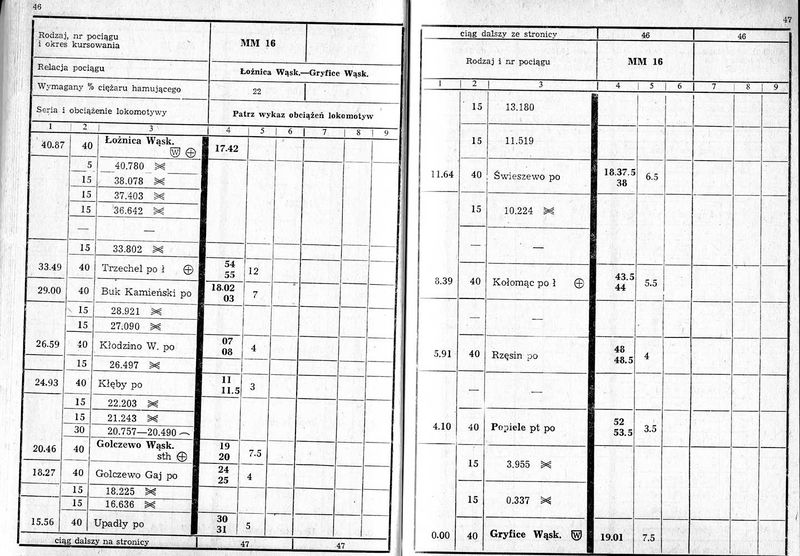 46
Rodzaj, nr pociągu
i okres kursowania
MM 16
Relacja pociągu
Łożnica Wąsk.—Gryfice Wąsk.
Wymagany % ciężaru hamującego
22
Seria i obciążenie lokomotywy
Patrz wykaz obciążeń lokomotyw
1 2 3 4 5 6 7 8 9
40.87 40 Łożnica Wąsk. 17.42
W
5 40.780
15 38.078
15 37.403
15 36.642
— —
15 33.802
33.49 40 Trzechel po ł 54
55 12
29.00 40 Buk Kamieński po 18.02
03 7
15 28.921
15 27.090
26.59 40 Kłodzino W. po 07
08 4
15 26.497
24.93 40 Kłęby po 11
11.5 3
15 22.203
15 21.243
30 20.757—20.490
20.46 40 Golczewo Wąsk. 19
sth 20 7.5
18.27 40 Golczewo Gaj po 24
25 4
15 18.225
15 16.636
15.56 40 Upadły po 30
31 5
ciąg dalszy na stronicy 47 47
47
ciąg dalszy ze stronicy 46 46
Rodzaj i nr pociągu MM 16
1 2 3 4 5 6 7 8 9
15 13.180
15 11.519
11.64 40 Świeszewo po 18.37.5
38 6.5
15 10.224
— —
8.39 40 Kołomąc po ł 43.5
44 5.5
— —
5.91 40 Rzęsin po 48
48.5 4
— —
4.10 40 Popiele pt po 52
53.5 3.5
15 3.955
15 0.337
0.00 40 Gryfice Wąsk. W 19.01 7.5